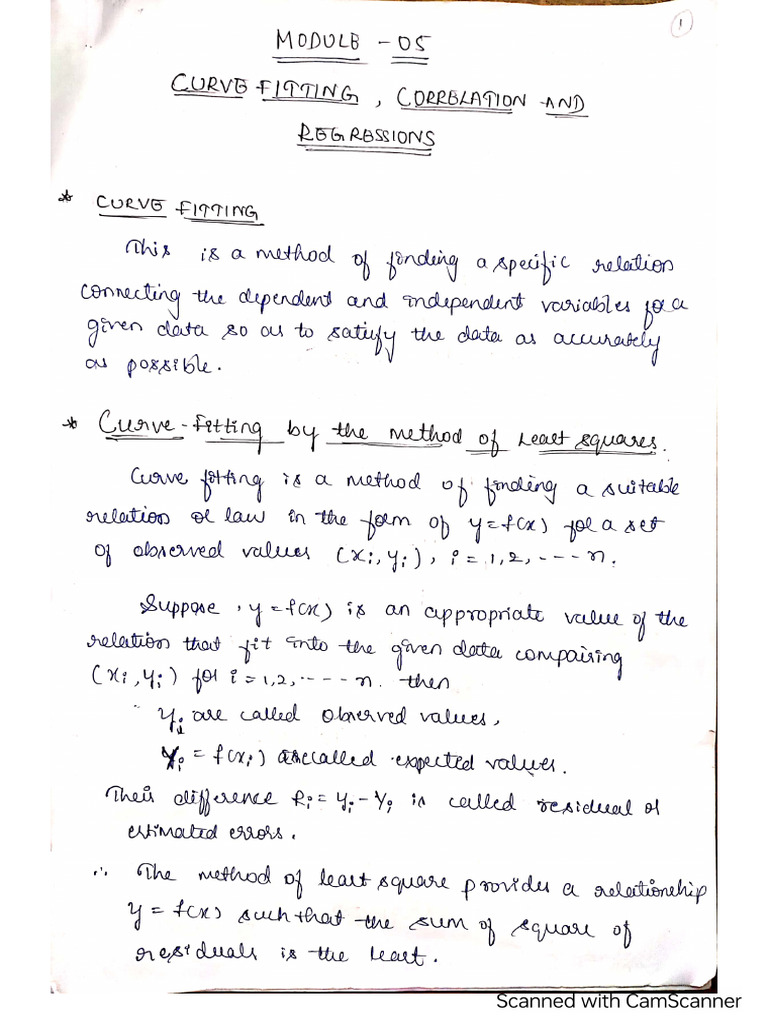 1
MODULE - 05
CURVE FITTING, CORRELATION AND
REGRESSIONS
* CURVE FITTING
This is a method of finding a specific relation
connecting the dependent and independent variables for a
given data so as to satisfy the data as accurately
as possible.
* Curve-fitting by the method of Least squares.
Curve fitting is a method of finding a suitable
relation or law in the form of y=f(x) for a set
of observed values (xi, yi), i = 1,2, ---- n.
Suppose, y = f(x) is an appropriate value of the
relation that fit into the given data compairing
(xi, yi) for i = 1,2, ----- n. then
yi are called observed values,
Yi = f(xi) are called expected values.
Their difference Ri = yi - Yi is called residual or
estimated errors.
∴ The method of least square provides a relationship
y = f(x) such that the sum of square of
residuals is the least.
Scanned with CamScanner